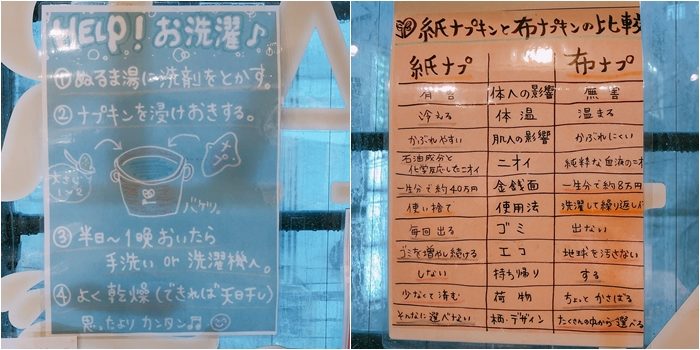 HELP! お洗濯♪
① ぬるま湯に洗剤をとかす。
② ナプキンを浸けおきする。
大さじ1〜2
ナプ
バケツ。
③ 半日〜1晩おいたら
手洗い or 洗濯機へ。
④ よく乾燥(できれば天日干し)
思ったよりカンタン♫
紙ナプキンと布ナプキンの比較
紙ナプ 布ナプ
有害 体への影響 無害
冷える 体温 温まる
かぶれやすい 肌への影響 かぶれにくい
石油成分と
化学反応したニオイ ニオイ 純粋な血液のニオ
一生分で約40万円 金銭面 一生分で約8万円
使い捨て 使用法 洗濯して繰り返し
毎回出る ゴミ 出ない
ゴミを増やし続ける エコ 地球を汚さない
しない 持ち帰り する
少なくて済む 荷物 ちょっとかさばる
そんなに選べない 柄・デザイン たくさんの中から選べる